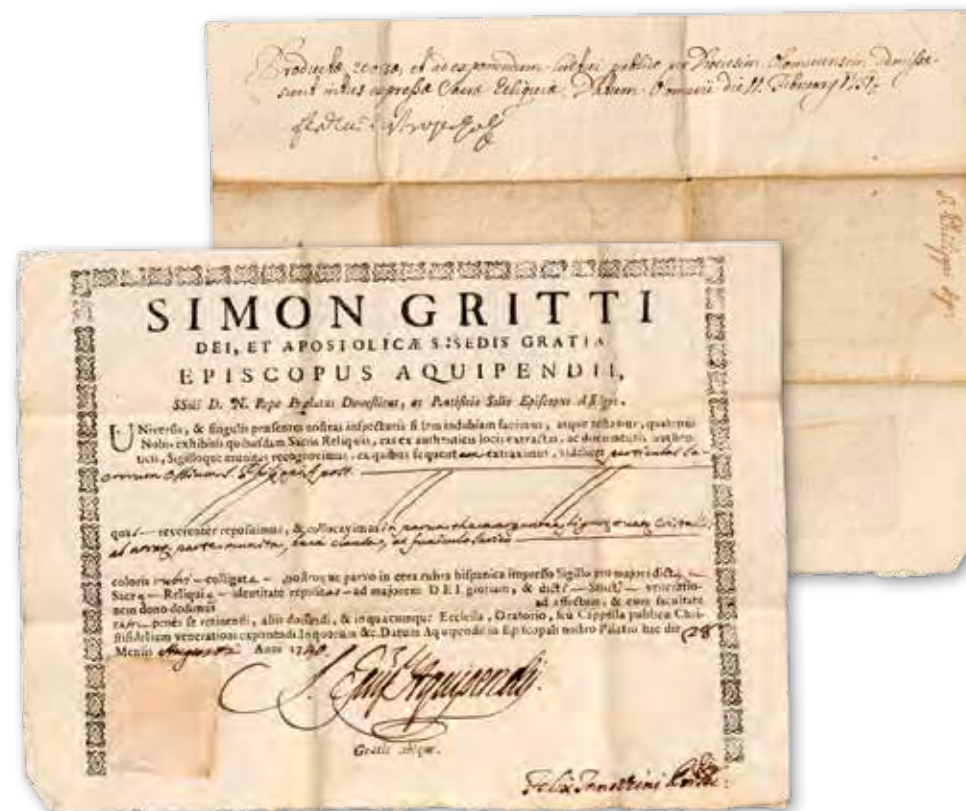 Producta coram, et ad exponendum cultui publico per Diocesim Olomucensem admissæ
sunt intus expressæ Sacræ Reliquiæ. Datum Olomucii die 11. February
S. Philippi Ap.
SIMON GRITTI
DEI, ET APOSTOLICÆ S. SEDIS GRATIA
EPISCOPUS AQUIPENDII,
SSmi D. N. Papæ Prælatus Domesticus, ac Pontificio Solio Episcopus Assistens.
UNiversis, & singulis præsentes nostras inspecturis fidem indubiam facimus, atque testamur, quatenus
Nobis exhibitis quibusdam Sacris Reliquiis, eas ex authenticis locis extractas, ac documentis authen-
ticis, Sigilloque munitas recognovimus, ex quibus sequentem extraximus, videlicet particulas sa-
crorum Ossium S. Philippi Apost.
quas reverenter reposuimus, & collocavimus in parva theca argentea, figuræ ovatæ Cristallo
ab utraque parte munita, bene clausa, ac funiculo serico
coloris rubri colligata nostroque parvo in cera rubra hispanica impresso Sigillo pro majori dictæ
Sacræ Reliquiæ identitate reposuimus ad majorem DEI gloriam, & dicti Sancti veneratio-
nem dono dedimus
ad affectum, & cum facultate
eam penes se retinendi, aliis donandi, & in quacumque Ecclesia, Oratorio, seu Cappella publicæ Chri-
stifidelium venerationi exponendi In quorum &c. Datum Aquipendii in Episcopali nostro Palatio hac die 28
Mensis Augusti Anni 1740.
S. Epus Aquipendii.
Gratis ubique.
Felix